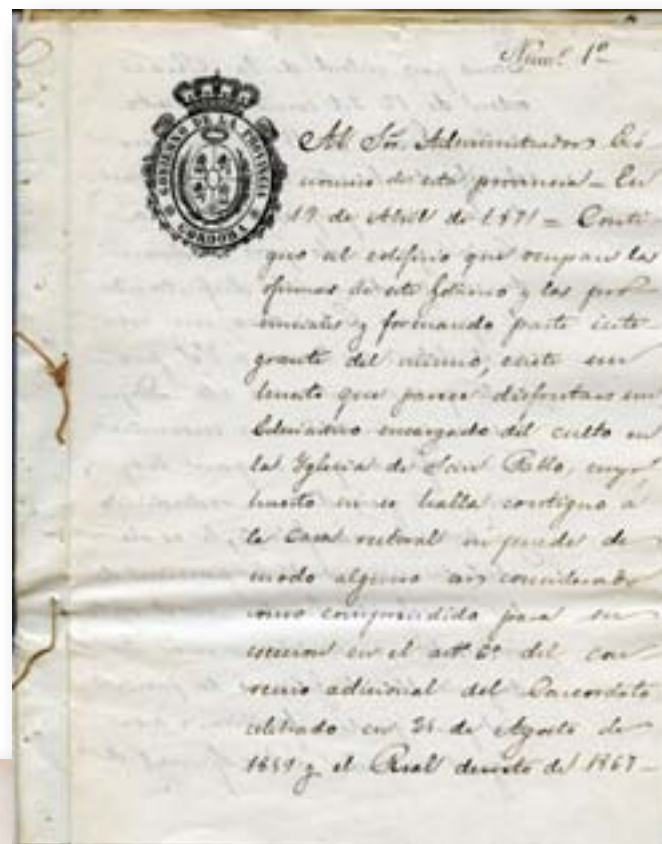 Num.º 1º
GOBIERNO DE LA PROVINCIA
CORDOBA
Al Sor. Administrador Eco-
nomico de esta provincia = En
19 de Abril de 1871 = Conti-
guo al edificio que ocupan las
oficinas de este Gobierno y las pro-
vinciales y formando parte inte-
grante del mismo, existe un
huerto que parece disfrutar un
encargado del culto en
la Yglesia de San Pablo, cuyo
huerto ni se halla contiguo á
la Casa rectoral ni puede de
modo alguno ser considerado
como comprendido para su
en el artº 6º del con-
venio adicional del Concordato
celebrado en de Agosto de
1859 y el Real decreto de 1867